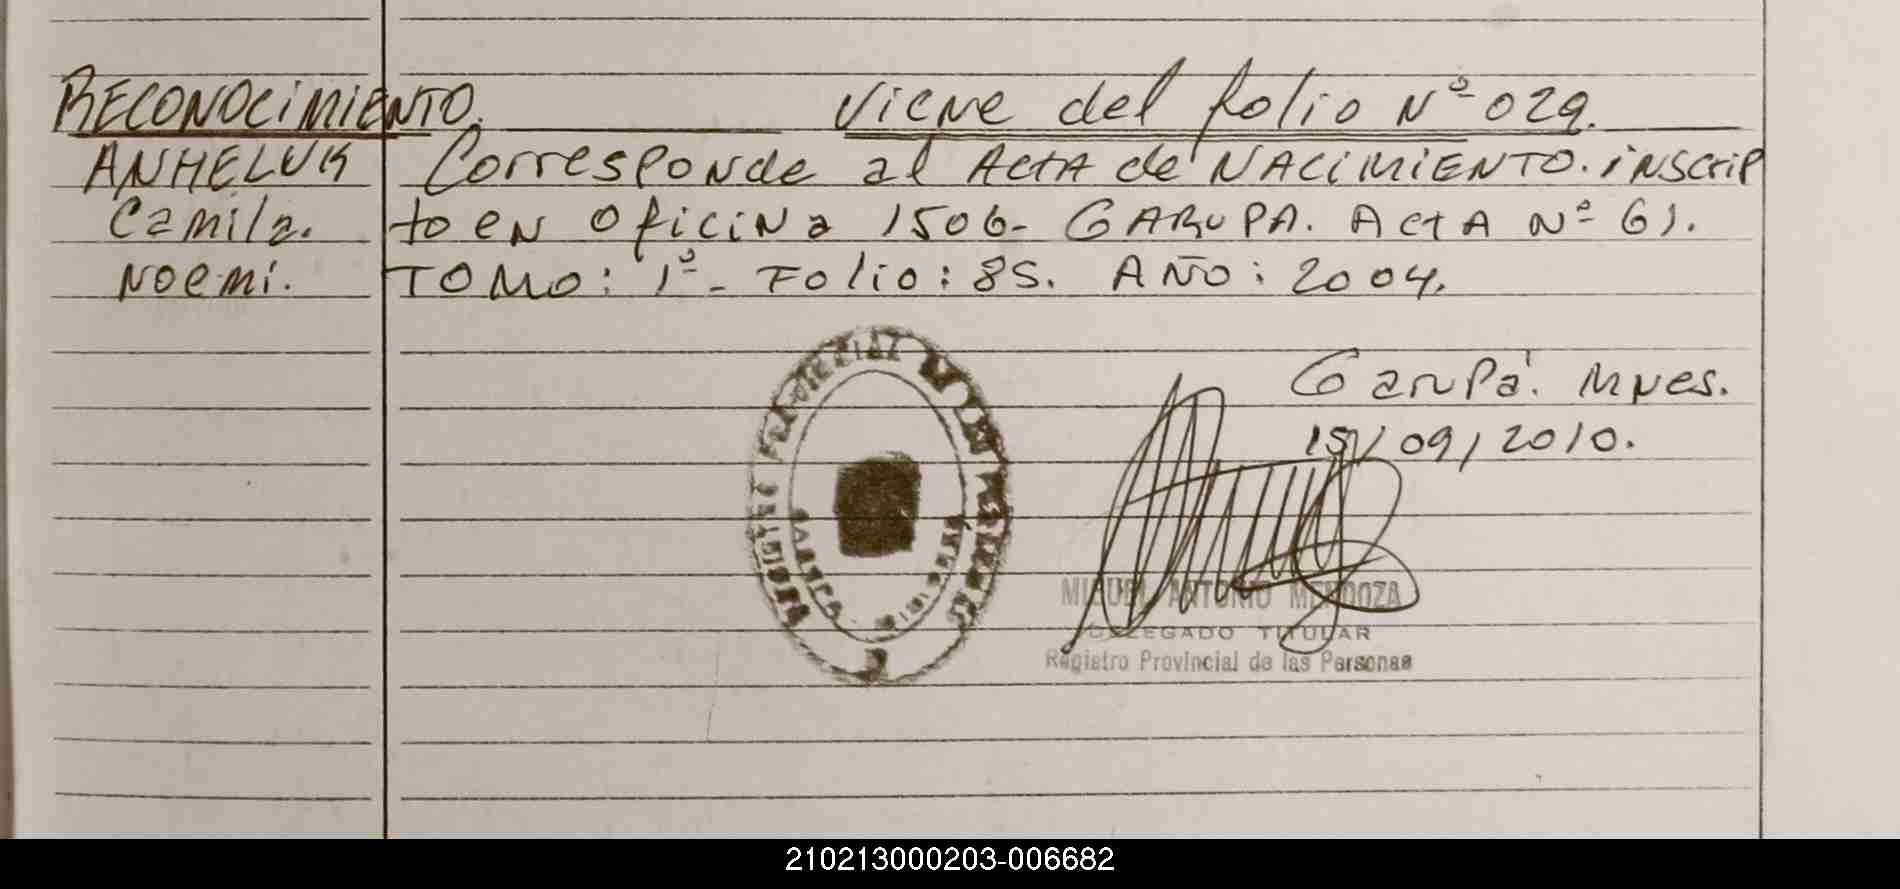 RECONOCIMIENTO. Viene del folio Nº 029.
ANHELUK Corresponde al ACTA de NACIMIENTO. iNSCrip
Camila. to eN Oficina 1506- GARUPA. Acta Nº 61.
Noemi. TOMO: 1º - Folio: 85. AÑO: 2004.
Garupá. Mnes.
15/09/2010.
MIGUEL ANTONIO MENDOZA
DELEGADO TITULAR
Registro Provincial de las Personas
210213000203-006682